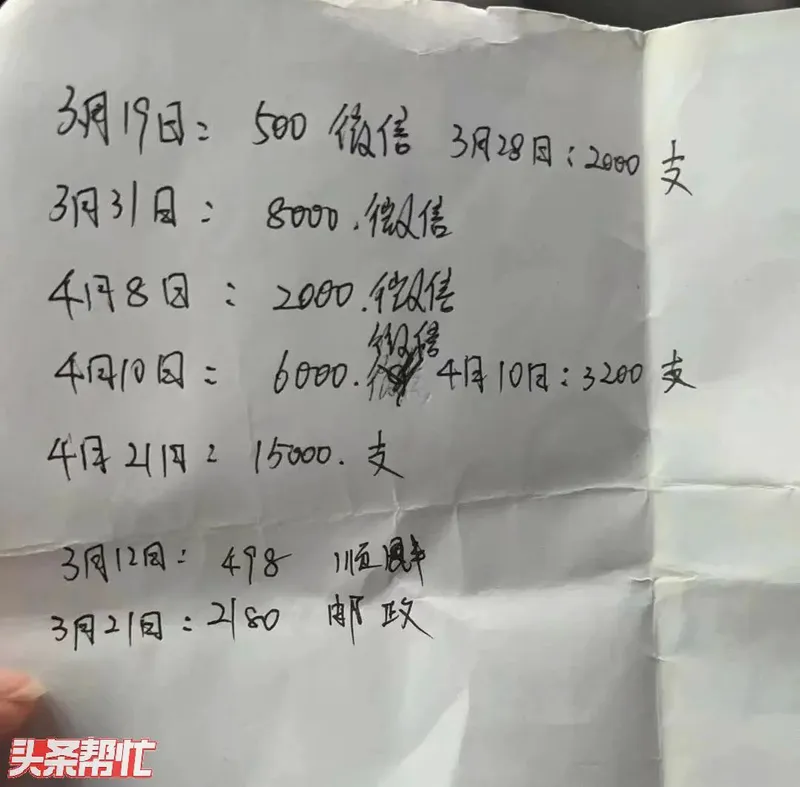 3月19日: 500 微信 3月28日: 2000 支
3月31日: 8000.微信
4月8日: 2000.微信
4月10日: 6000.微信 4月10日: 3200 支
4月21日: 15000.支
3月12日: 498 顺
3月21日: 2180 邮政
头条帮忙